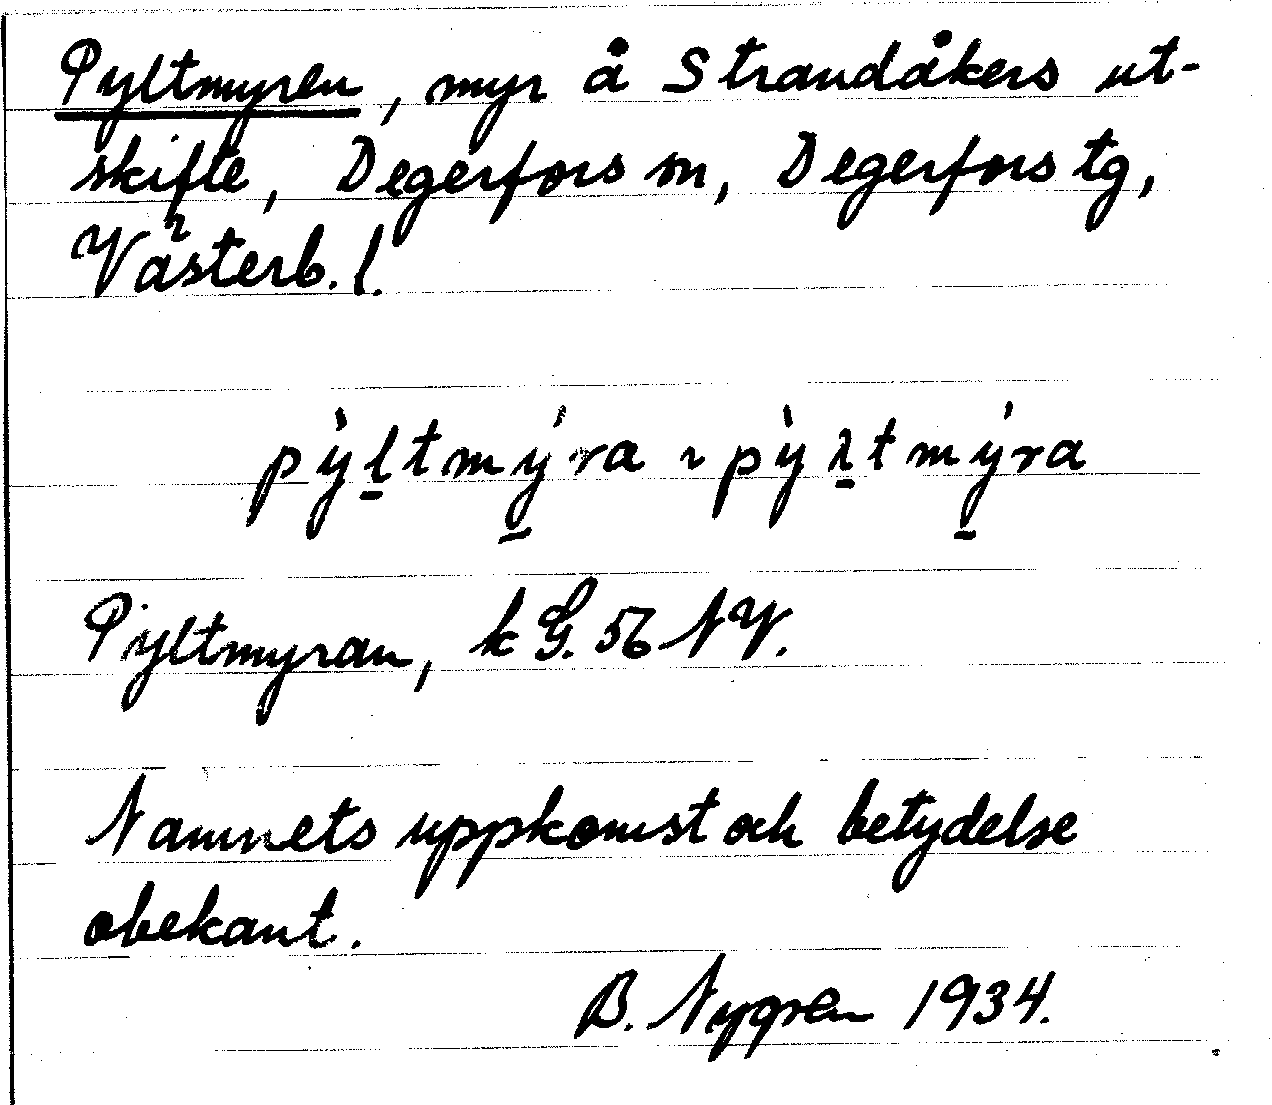 Pyltmyren, myr å Strandåkers ut-
skifte, Degerfors sn, Degerfors tg,
Västerb. l.
pỳl̠tmý̠ra ~ pỳλ̠tmý̠ra
Pyltmyran, k G. 56 NV.
Namnets uppkomst och betydelse
obekant.
B. Nygren 1934.